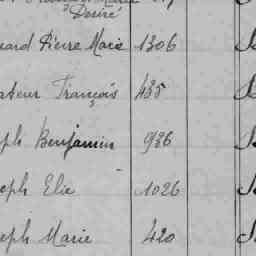 Désiré
uard Pierre Marie 1306
ateur François 435
ph Benjamin 986
eph Elie 1026
eph Marie 420